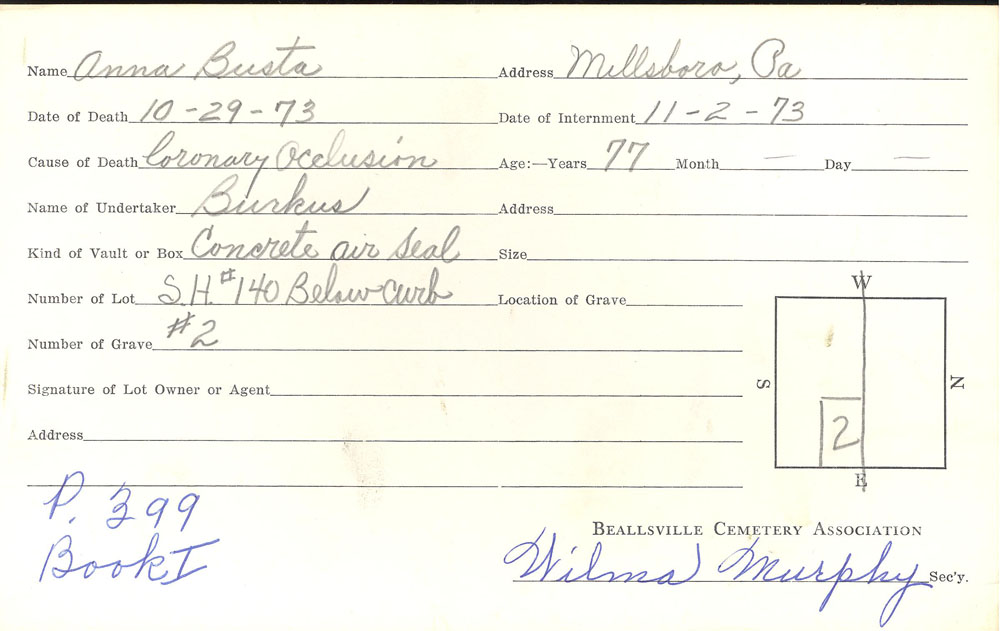 Name Anna Busta Address Millsboro, Pa
Date of Death 10-29-73 Date of Internment 11-2-73
Cause of Death Coronary Occlusion Age:—Years 77 Month — Day —
Name of Undertaker Burkus Address
Kind of Vault or Box Concrete air seal Size
Number of Lot S.H. #140 Below curb Location of Grave
Number of Grave #2
Signature of Lot Owner or Agent
Address
W
S
N
2
E
P. 399
Book I
BEALLSVILLE CEMETERY ASSOCIATION
Wilma Murphy Sec'y.